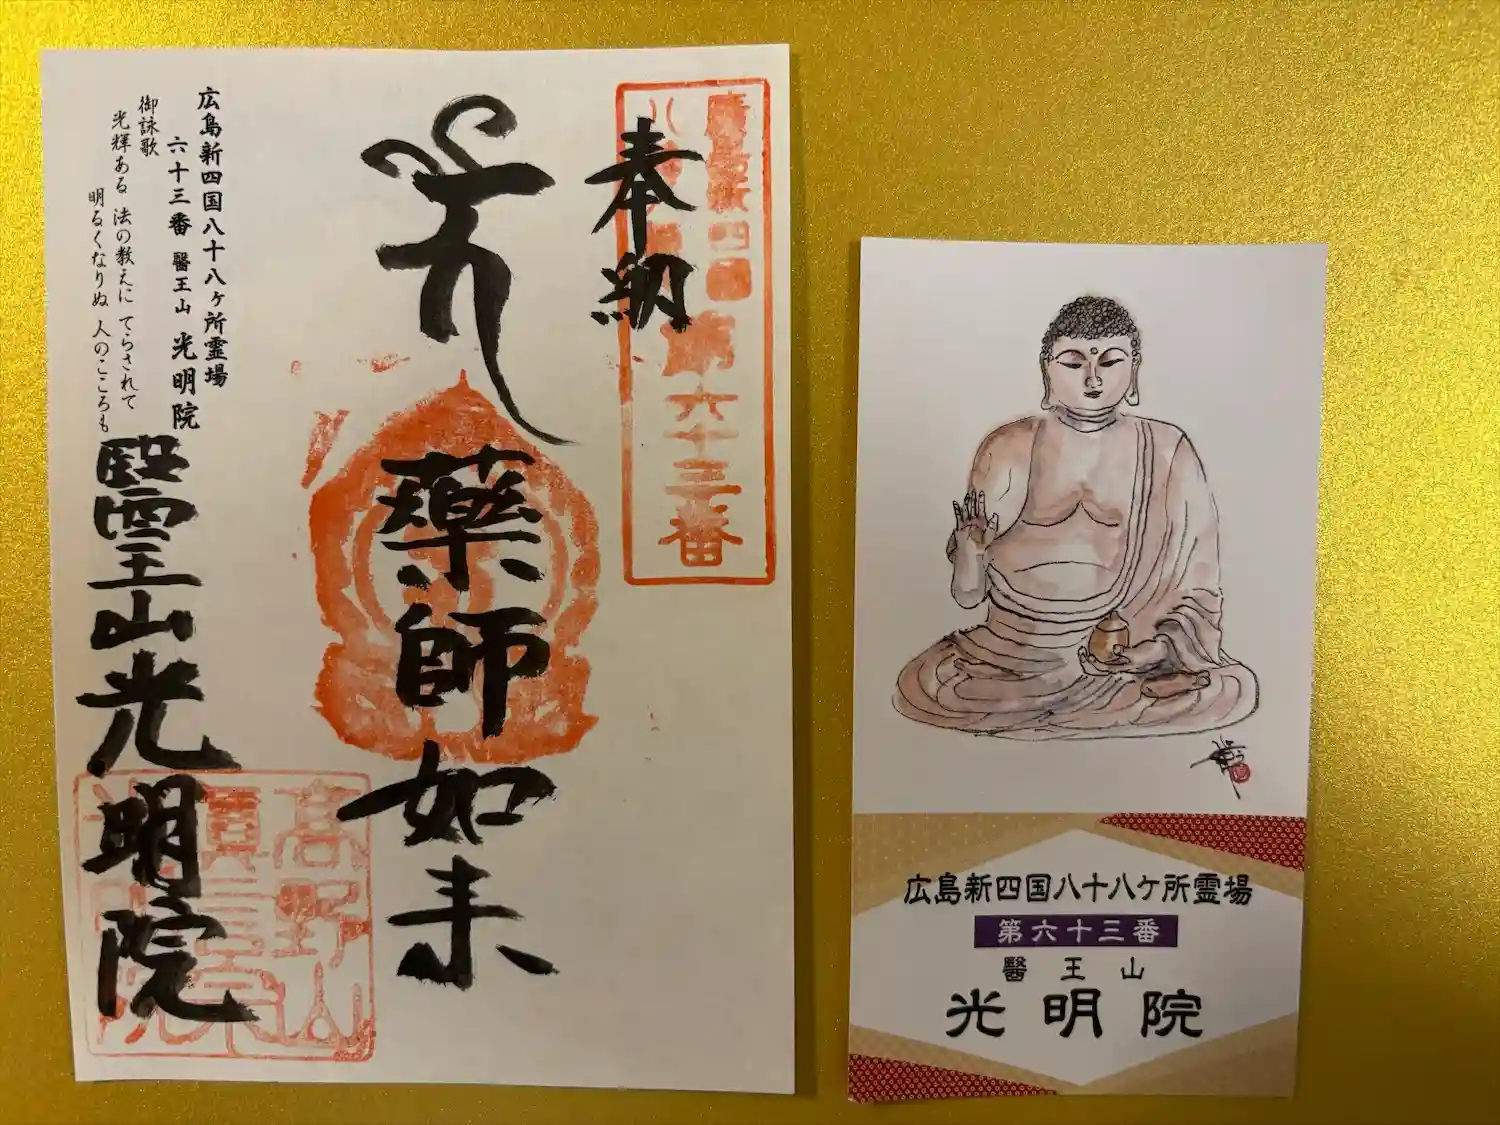 奉納
廣島新四国
八十八ヶ所
第六十三番
薬師如来
醫王山光明院
高野山
真言宗
光明院
広島新四国八十八ヶ所霊場
六十三番 醫王山 光明院
御詠歌
光輝ある 法の教えに てらされて
明るくなりぬ 人のこころも
広島新四国八十八ケ所霊場
第六十三番
醫王山
光明院